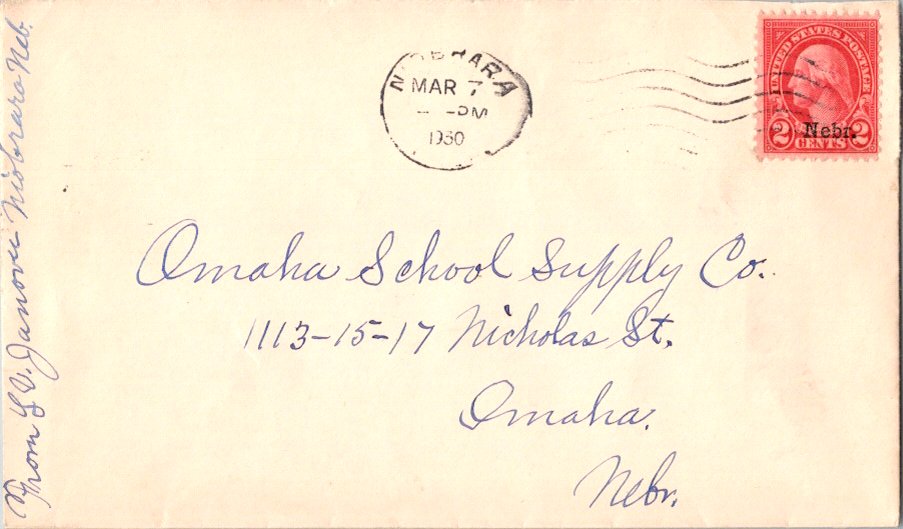 From L.V. Janovec Niobrara Neb.
NIOBRARA
MAR 7
PM
1930
UNITED STATES POSTAGE
Nebr.
2 CENTS 2
Omaha School Supply Co.
1113-15-17 Nicholas St.
Omaha.
Nebr.